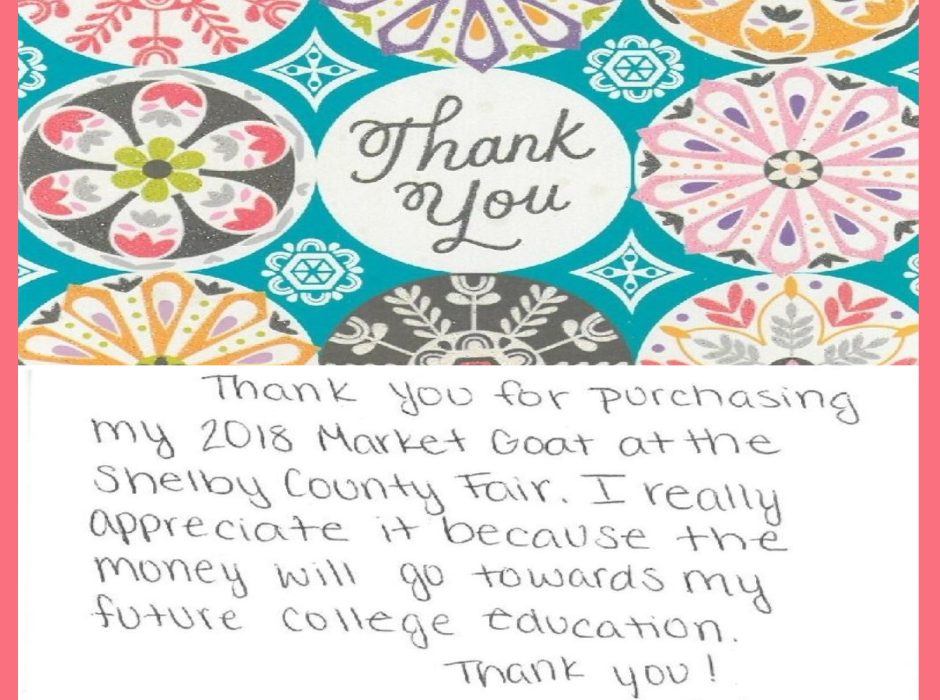 Thank
You
Thank you for purchasing
my 2018 Market Goat at the
Shelby County Fair. I really
appreciate it because the
money will go towards my
future college education.
Thank you!